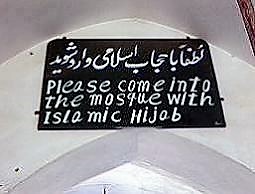 لطفا با حجاب اسلامی وارد شوید
Please come into
the mosque with
Islamic Hijab